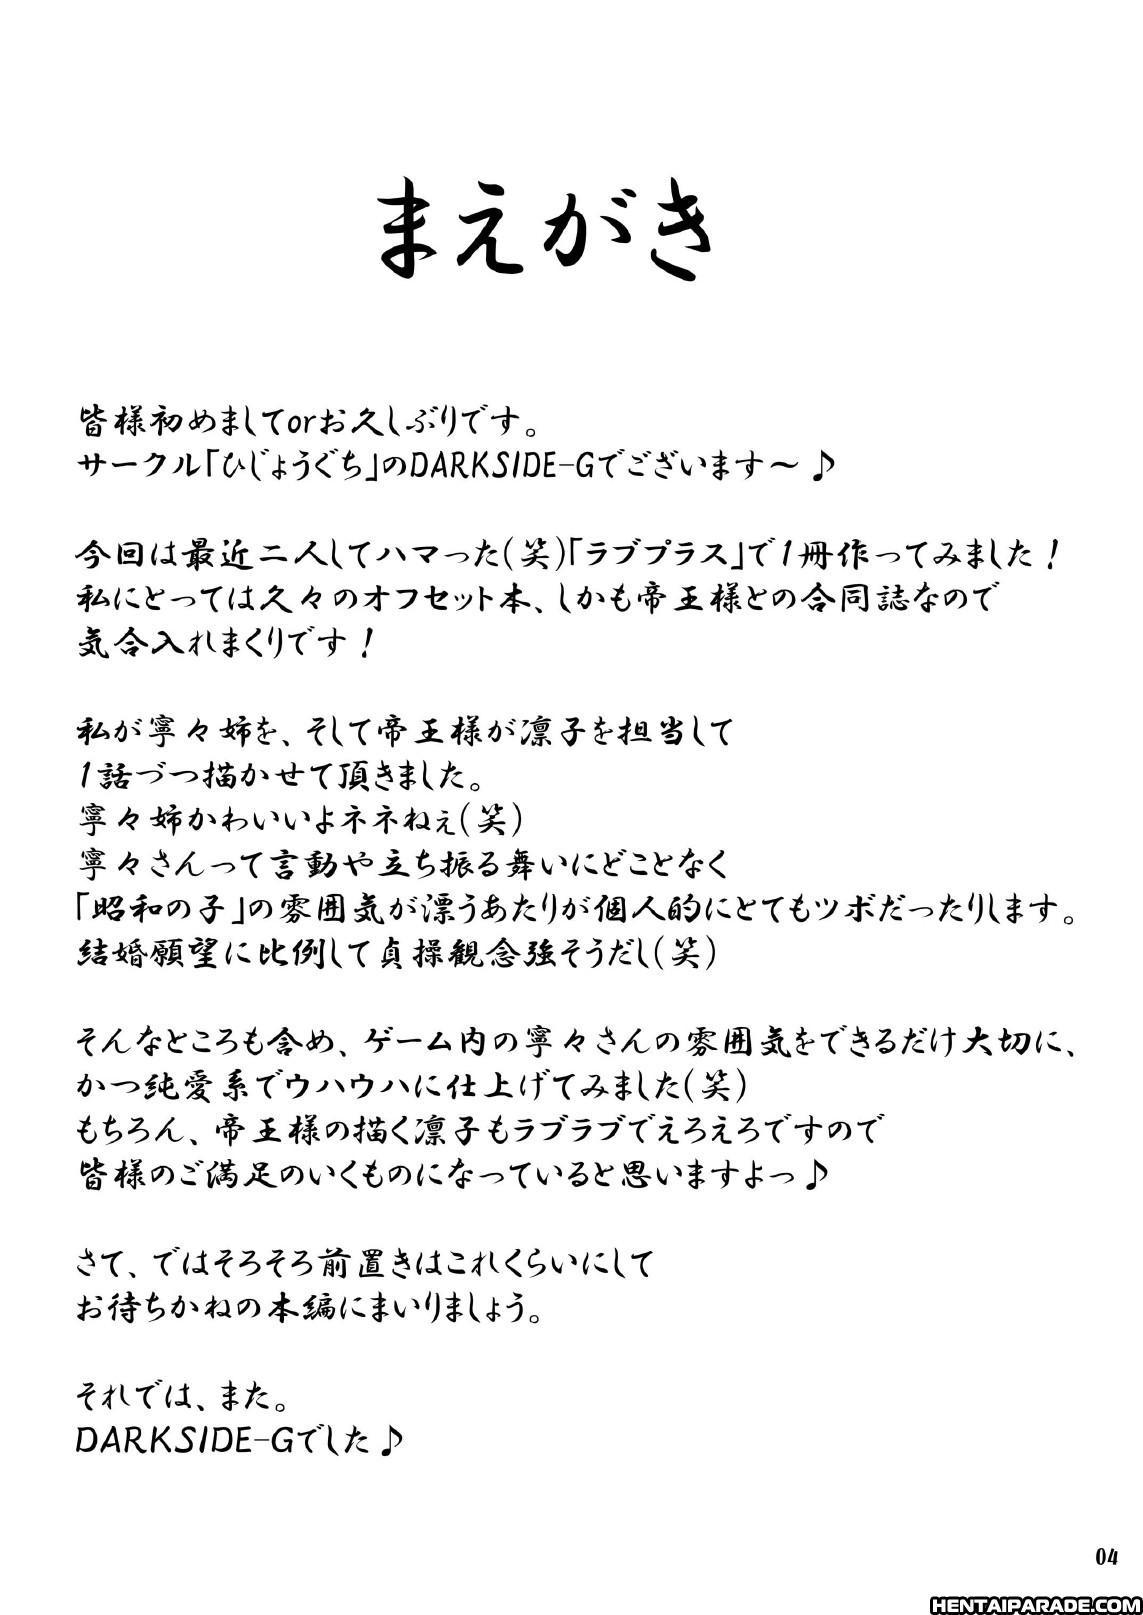 まえがき
皆様初めましてorお久しぶりです。
サークル「ひじょうぐち」のDARKSIDE-Gでございます～♪
今回は最近二人してハマった(笑)「ラブプラス」で1冊作ってみました！
私にとっては久々のオフセット本、しかも帝王様との合同誌なので
気合入れまくりです！
私が寧々姉を、そして帝王様が凛子を担当して
1話づつ描かせて頂きました。
寧々姉かわいいよネネねぇ(笑)
寧々さんって言動や立ち振る舞いにどことなく
「昭和の子」の雰囲気が漂うあたりが個人的にとてもツボだったりします。
結婚願望に比例して貞操観念強そうだし(笑)
そんなところも含め、ゲーム内の寧々さんの雰囲気をできるだけ大切に、
かつ純愛系でウハウハに仕上げてみました(笑)
もちろん、帝王様の描く凛子もラブラブでえろえろですので
皆様のご満足のいくものになっていると思いますよっ♪
さて、ではそろそろ前置きはこれくらいにして
お待ちかねの本編にまいりましょう。
それでは、また。
DARKSIDE-Gでした♪
04
HENTAIPARADE.COM